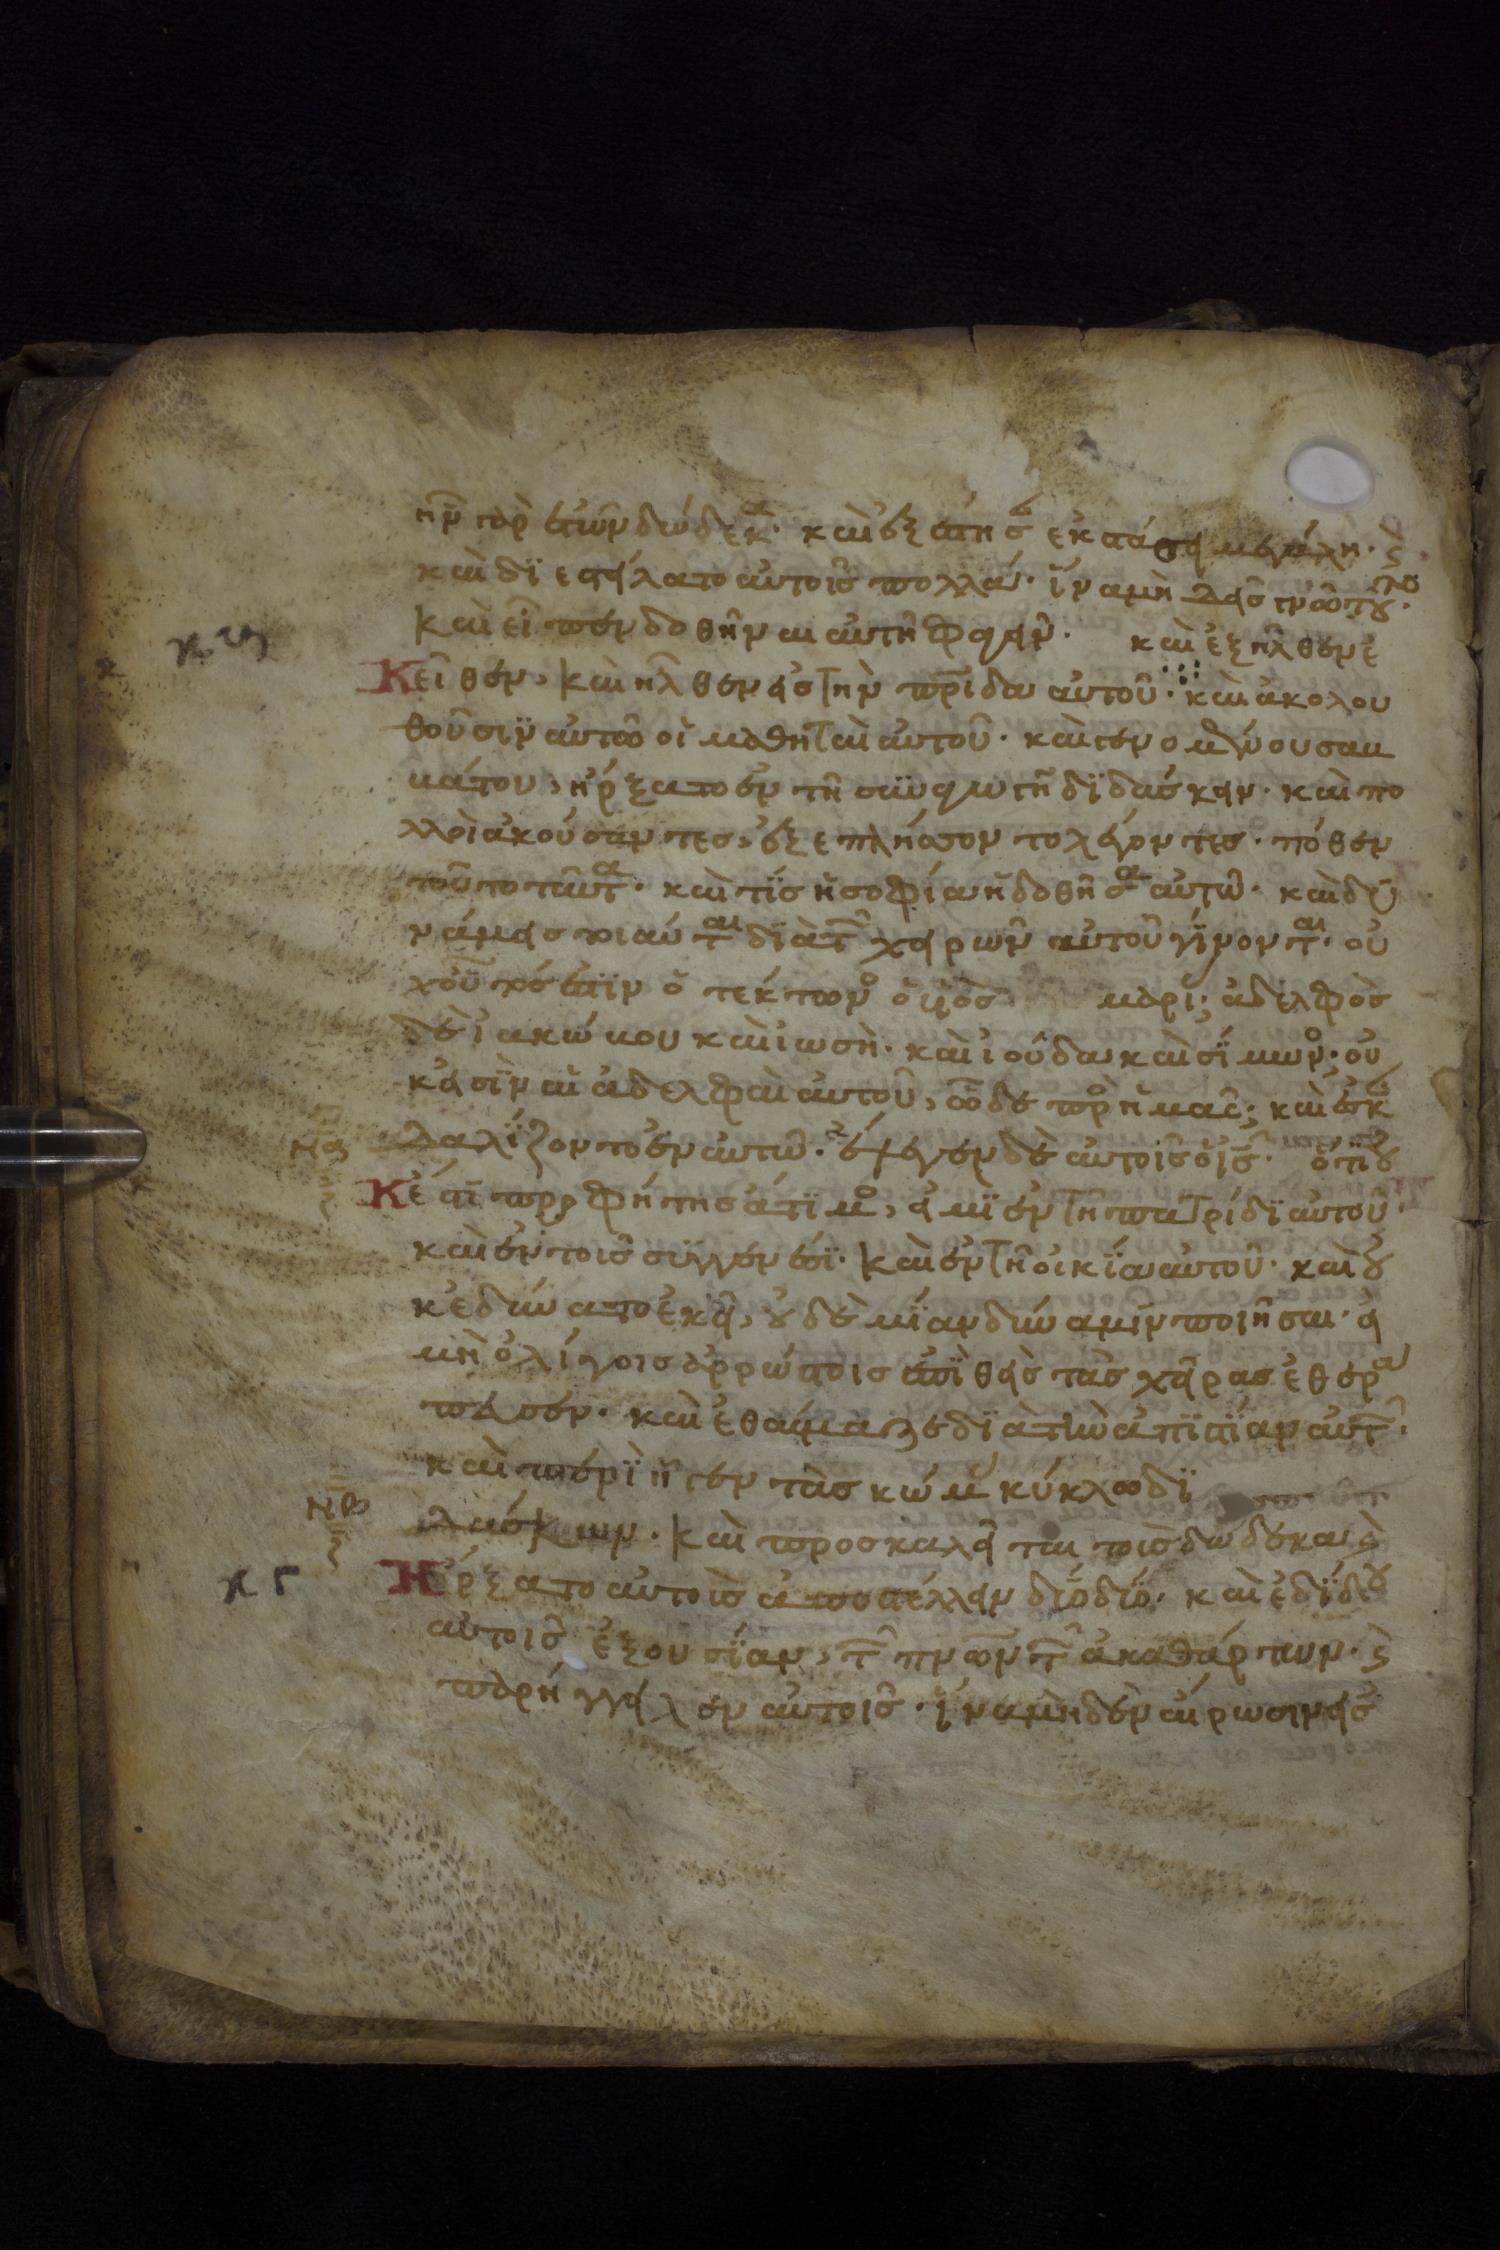 ἦν γὰρ ἐτῶν δώδεκα· καὶ ἐξέστησ ἐκστάσει μεγάλη· κ
καὶ διεστείλατο αὐτοῖσ πολλά· ἵνα μηδεὶσ γνῶ τοῦτο·
καὶ εἶπεν δοθῆναι αὐτῆ φαγεῖν· καὶ ἐξῆλθεν ἐ
Κεῖθεν, καὶ ἦλθεν εἰσ τὴν πρίδα αὐτοῦ· καὶ ἀκολου
θοῦσιν αὐτῶ οἱ μαθηταὶ αὐτοῦ· καὶ γενομένου σαμ
μάτου, ἤρξατο ἐν τῆ συναγωγῆ διδάσκειν· καὶ πο
λλοὶ ἀκούσαντεσ, ἐξεπλήσσοντο λέγοντεσ· πόθεν
τούτο ταῦτα· καὶ τίσ ἡ σοφία ἡ δοθῆσα αὐτῶ· καὶ δυ
νάμεισ τοιαύται διὰ τῶν χειρῶν αὐτοῦ γίνονται· οὐ
χ οὗτόσ ἐστιν ὁ τέκτων ὁ υἱὸσ μαρίασ; ἀδελφὸσ
δὲ ἰακώμου καὶ ἰωσὴ· καὶ ἰούδα καὶ σίμωνοσ· οὐ
κ εἰσὶν αἱ ἀδελφαὶ αὐτοῦ, ὧδε πρὸσ ἡμασ; καὶ ἐσκαν
δαλίζοντο ἐν αὐτῶ· ἔλεγεν δὲ αὐτοῖσ ὁ ἰσ· ὅτι οὐ
Κέστι προφήτησ ἄτιμοσ, εἰ μὶ ἐν τῆ πατρίδι αὐτοῦ·
καὶ ἐν τοῖσ συγγενέσι· καὶ ἐν τῆ οἰκία αὐτοῦ· καὶ οὐ
κ ἐδύνατο ἐκεῖ, οὐδὲ μίαν δύναμιν ποιῆσαι· εἰ
μὴ ὀλίγοισ ἀρρώστοισ ἐπιθεὶσ τὰσ χεῖρασ ἐθερα
πευσεν· καὶ ἐθαύμαζε διὰ τὴν ἀπιστίαν αὐτῶν·
καὶ περιῆγεν τὰσ κώμασ κύκλω δι
δάσκων· καὶ προσκαλεῖται τοὺσ δώδεκα κ
Ηέρξατο αὐτοὺσ ἀποστέλλειν δύο δύο· καὶ ἐδίδου
αὐτοῖσ ἐξουσίαν, τῶν πνων τῶν ἀκαθάρτων· κ
παρήγγειλεν αὐτοῖσ· ἵνα μηδὲν αἴρωσιν εἰσ